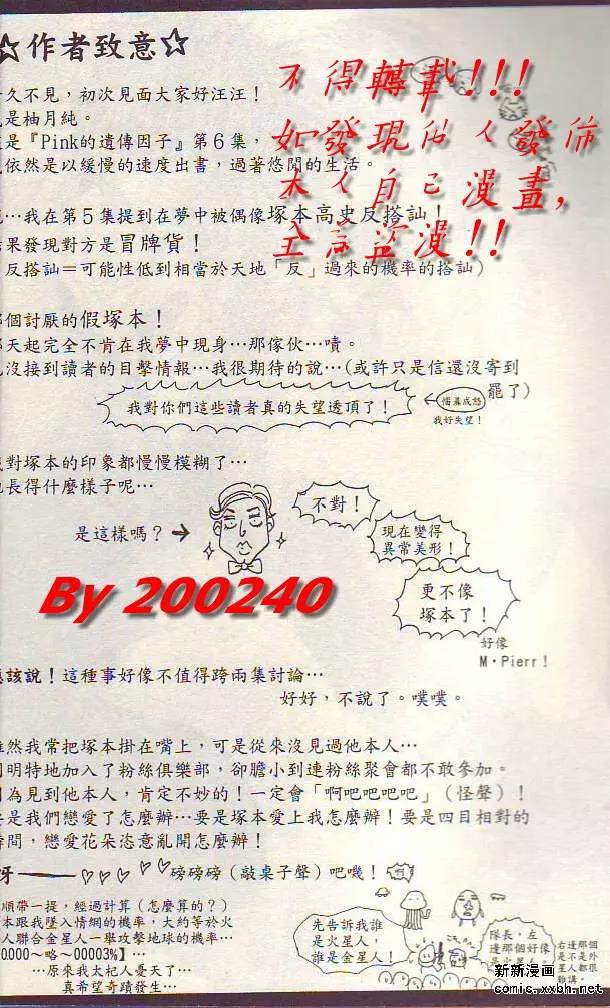 ☆作者致意☆
久不見，初次見面大家好汪汪！
是柚月純。
是『Pink的遺傳因子』第6集，
依然是以緩慢的速度出書，過著悠閒的生活。
不得轉載!!!
如發現他人發佈
本人自己漫畫,
全言盜漫!!
…我在第5集提到在夢中被偶像塚本高史反搭訕！
果發現對方是冒牌貨！
反搭訕＝可能性低到相當於天地「反」過來的機率的搭訕）
個討厭的假塚本！
天起完全不肯在我夢中現身…那傢伙…嘖。
沒接到讀者的目擊情報…我很期待的說…(或許只是信還沒寄到
罷了)
我對你們這些讀者真的失望透頂了！
惱羞成怒
我好失望！
對塚本的印象都慢慢模糊了…
長得什麼樣子呢…
是這樣嗎？→
不對！
現在變得
異常美形！
更不像
塚本了！
好像
M·Pierr！
By 200240
該說！這種事好像不值得跨兩集討論…
好好，不說了。噗噗。
然我常把塚本掛在嘴上，可是從來沒見過他本人…
明特地加入了粉絲俱樂部，卻膽小到連粉絲聚會都不敢參加。
為見到他本人，肯定不妙的！一定會「啊吧吧吧吧」（怪聲）！
是我們戀愛了怎麼辦…要是塚本愛上我怎麼辦！要是四目相對的
間，戀愛花朵恣意亂開怎麼辦！
呀——♡♡♡♡♡磅磅磅（敲桌子聲）吧嘰！
順帶一提，經過計算（怎麼算的？）
本跟我墜入情網的機率，大約等於火
人聯合金星人一舉攻擊地球的機率…
00000～略～00003%】…
…原來我太杞人憂天了…
真希望奇蹟發生…
先告訴我誰
是火星人，
誰是金星人！
隊長，左
邊那個好像
是火星人。
右邊那個
是不是外
星人都很
難講。
新新漫画
comic.xxbh.net